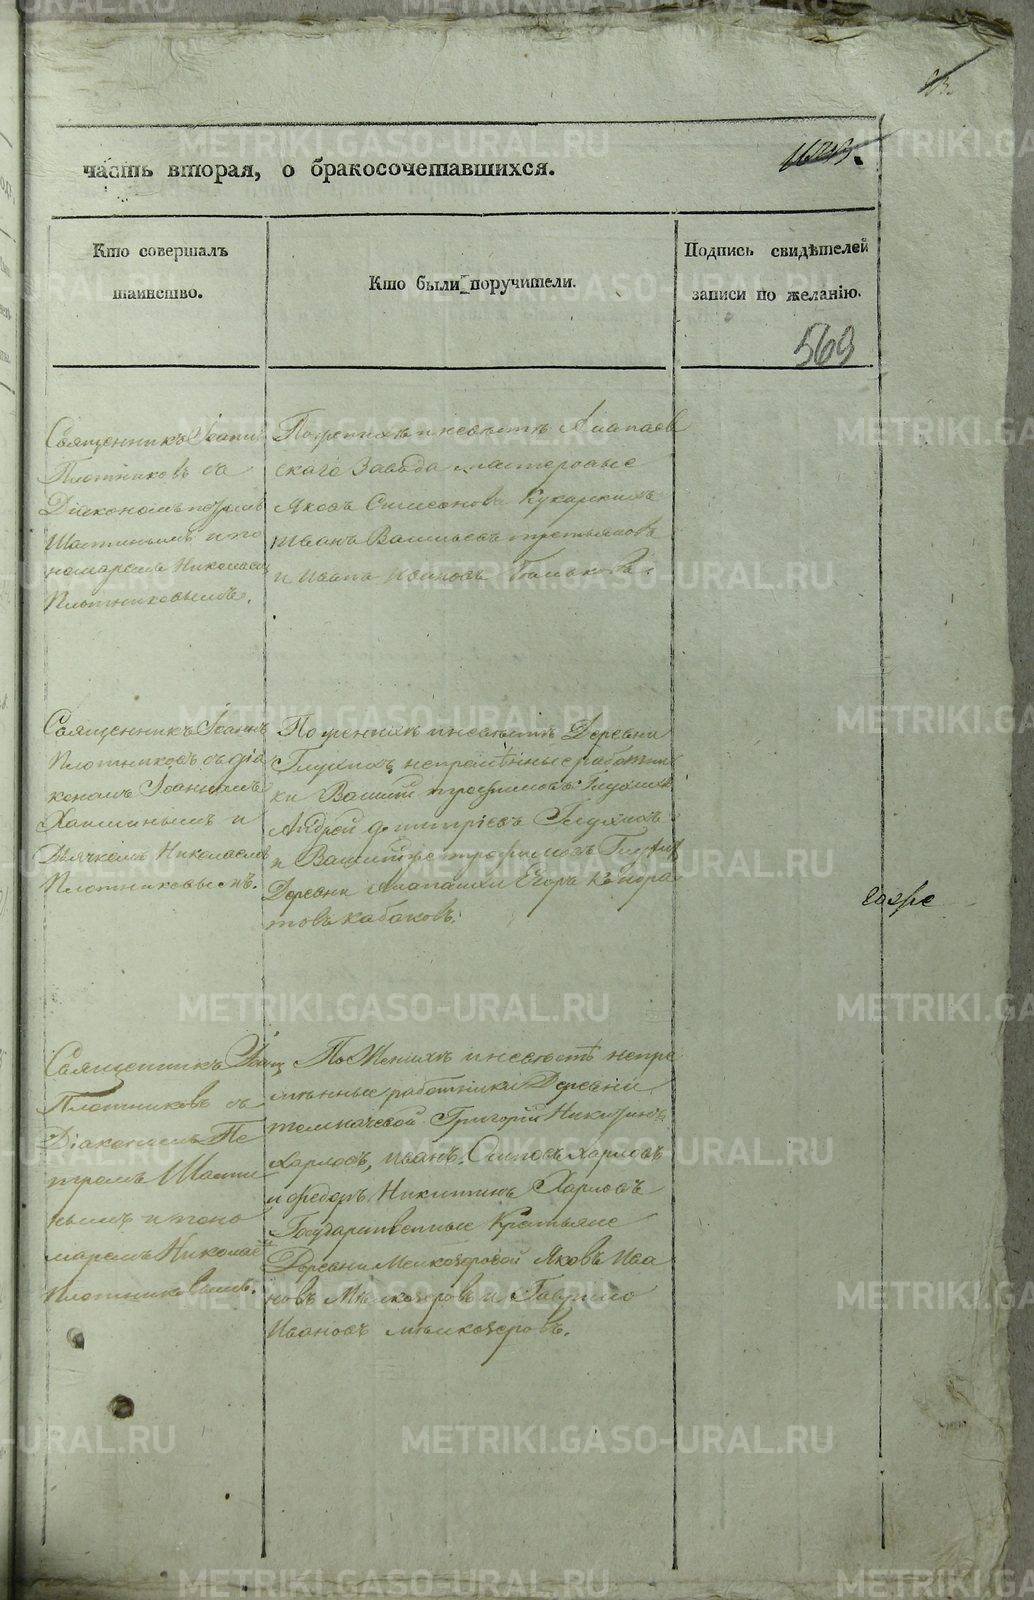 часть вторая, о бракосочетавшихся.
Кто совершалъ
таинство.
Кто были поручители.
Подпись свидѣтелей
записи по желанію.
569
Священникъ Іоаннъ
Плотниковъ съ
Діакономъ Петромъ
и по
номаремъ Николаемъ
Плотниковымъ.
По женихѣ и невѣстѣ Алапаев
скаго Завода мастеровые
Яковъ Симеоновъ Кукарскихъ
Иванъ Васильевъ Третьяковъ
и Иванъ Ивановъ
Священникъ Іоаннъ
Плотниковъ съ діа
кономъ Іоанномъ
и
Дьячкомъ Николаемъ
Плотниковымъ.
По женихѣ и невѣстѣ Деревни
Глухихъ непремѣнные работни
ки Василій Трофимовъ Глухихъ
Андрей Дмитріевъ Глухихъ
и Василій Трофимовъ Глухихъ
Деревни Алапаихи Егоръ Кондра
товъ Кабаковъ.
Священникъ Іоан
Плотниковъ съ
Діакономъ Пе
тромъ
нымъ и поно
маремъ Николаемъ
Плотниковымъ.
По женихѣ и невѣстѣ непре
мѣнные работники Деревни
Толмачевой Григорій Никитинъ
Харловъ, Иванъ Харловъ
и Федоръ Никитинъ Харловъ
Государственные Крестьяне
Деревни Мелкозеровой Яковъ Ива
новъ Мѣлкозеровъ и Гаврило
Ивановъ Мѣлкозеровъ.
METRIKI.GASO-URAL.RU